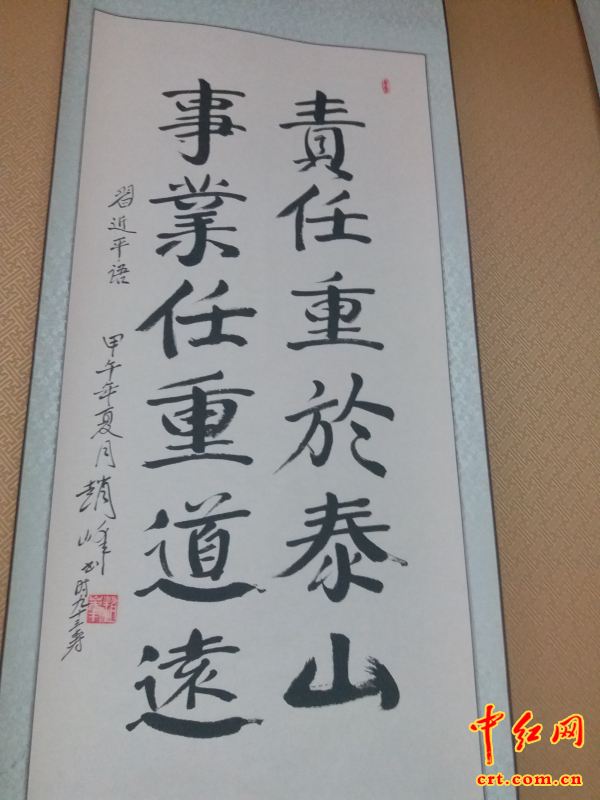 責任重於泰山
事業任重道遠
習近平語
甲午年夏月趙峰书时九十三寿
中红网
crt.com.cn